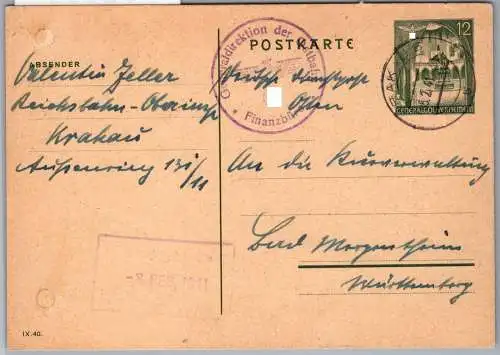 POSTKARTE
ABSENDER
Valentin Zeller
Reichsbahn-Oberinsp
Krakau
Außenring 131/11
Generaldirektion der Ostbahn
* Finanzbüro
Deutsche Dienstpost
Osten
12
GENERALGOUVERNEMENT
KRAKAU
An die Kurverwaltung
Bad Mergentheim
Württemberg
-8. FEB. 1941
IX.40.